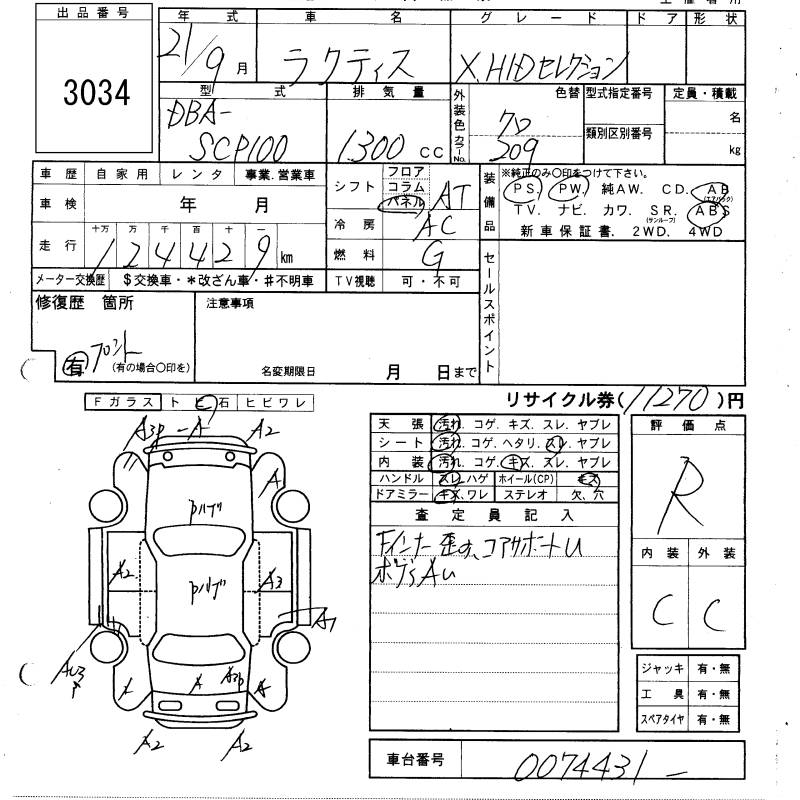 出品番号
3034
年式 車名 グレード ドア 形状
21/9月 ラクティス X.HIDセレクション
型式 排気量 外装色 色替 型式指定番号 定員・積載
DBA-
SCP100
1300 CC
カラーNo. 209
類別区別番号
名
kg
車歴 自家用 レンタ 事業.営業車
車検 年 月
走行 十万 万 千 百 十 一
124429 km
メーター交換歴 $交換車・*改ざん車・#不明車
シフト フロア コラム パネル AT
冷房 AC
燃料 G
TV視聴 可・不可
装備品
※純正のみ〇印をつけて下さい。
PS. PW. 純AW. CD. AB(エアバック)
TV. ナビ. カワ. SR.(サンルーフ) ABS
新車保証書. 2WD. 4WD
セールスポイント
修復歴 箇所
有 フロント
(有の場合〇印を)
注意事項
名変期限日 月 日まで
リサイクル券(11270)円
Fガラス ト ビ 石 ヒビワレ
天張 汚れ. コゲ. キズ. スレ. ヤブレ
シート 汚れ. コゲ. ヘタリ. スレ. ヤブレ
内装 汚れ. コゲ. キズ. スレ. ヤブレ
ハンドル スレ.ハゲ ホイール(CP) キズ
ドアミラー キズ.ワレ ステレオ 欠、穴
査定員記入
Fインナー歪み、コアサポートU
ボデーAU
評価点
R
内装 外装
C C
ジャッキ 有・無
工具 有・無
スペアタイヤ 有・無
車台番号 0074431
A3P -A- A2
A
Pハゲ
A2 Pハゲ A3
A1
A A A2P A
A2 A2